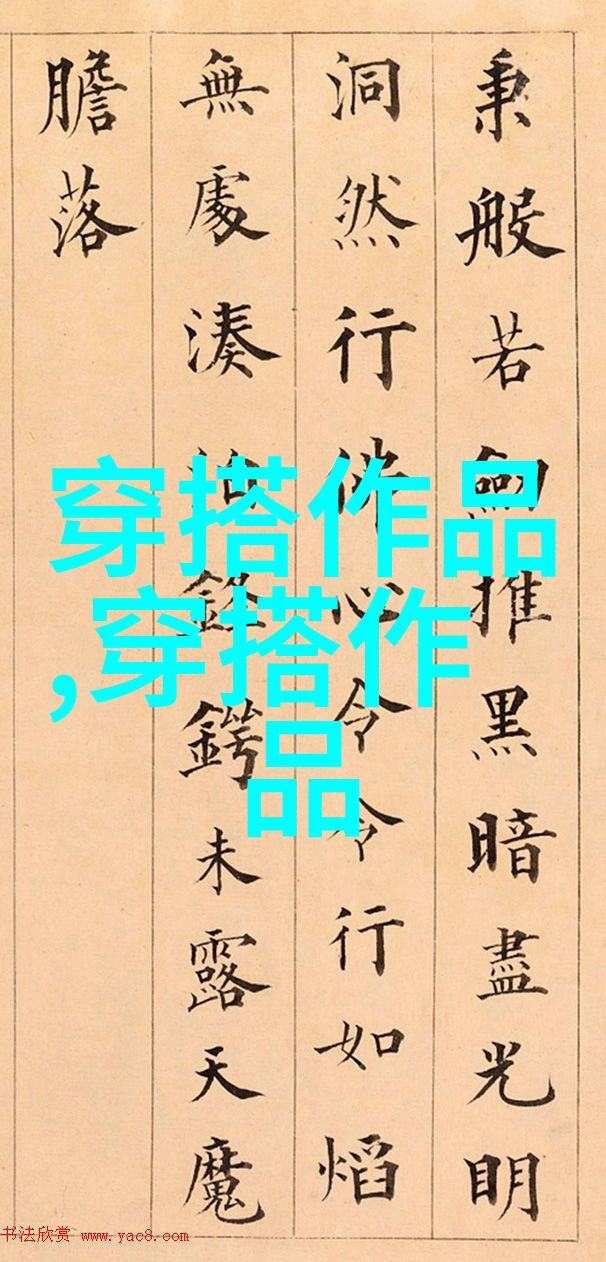 秉般若劒推黑暗盡光明
洞然行佛心令令行如熖
無處湊泊鋒鍔未露天魔
膽落
穿搭作品
,穿搭作
品
书法欣赏 www.yac8.com